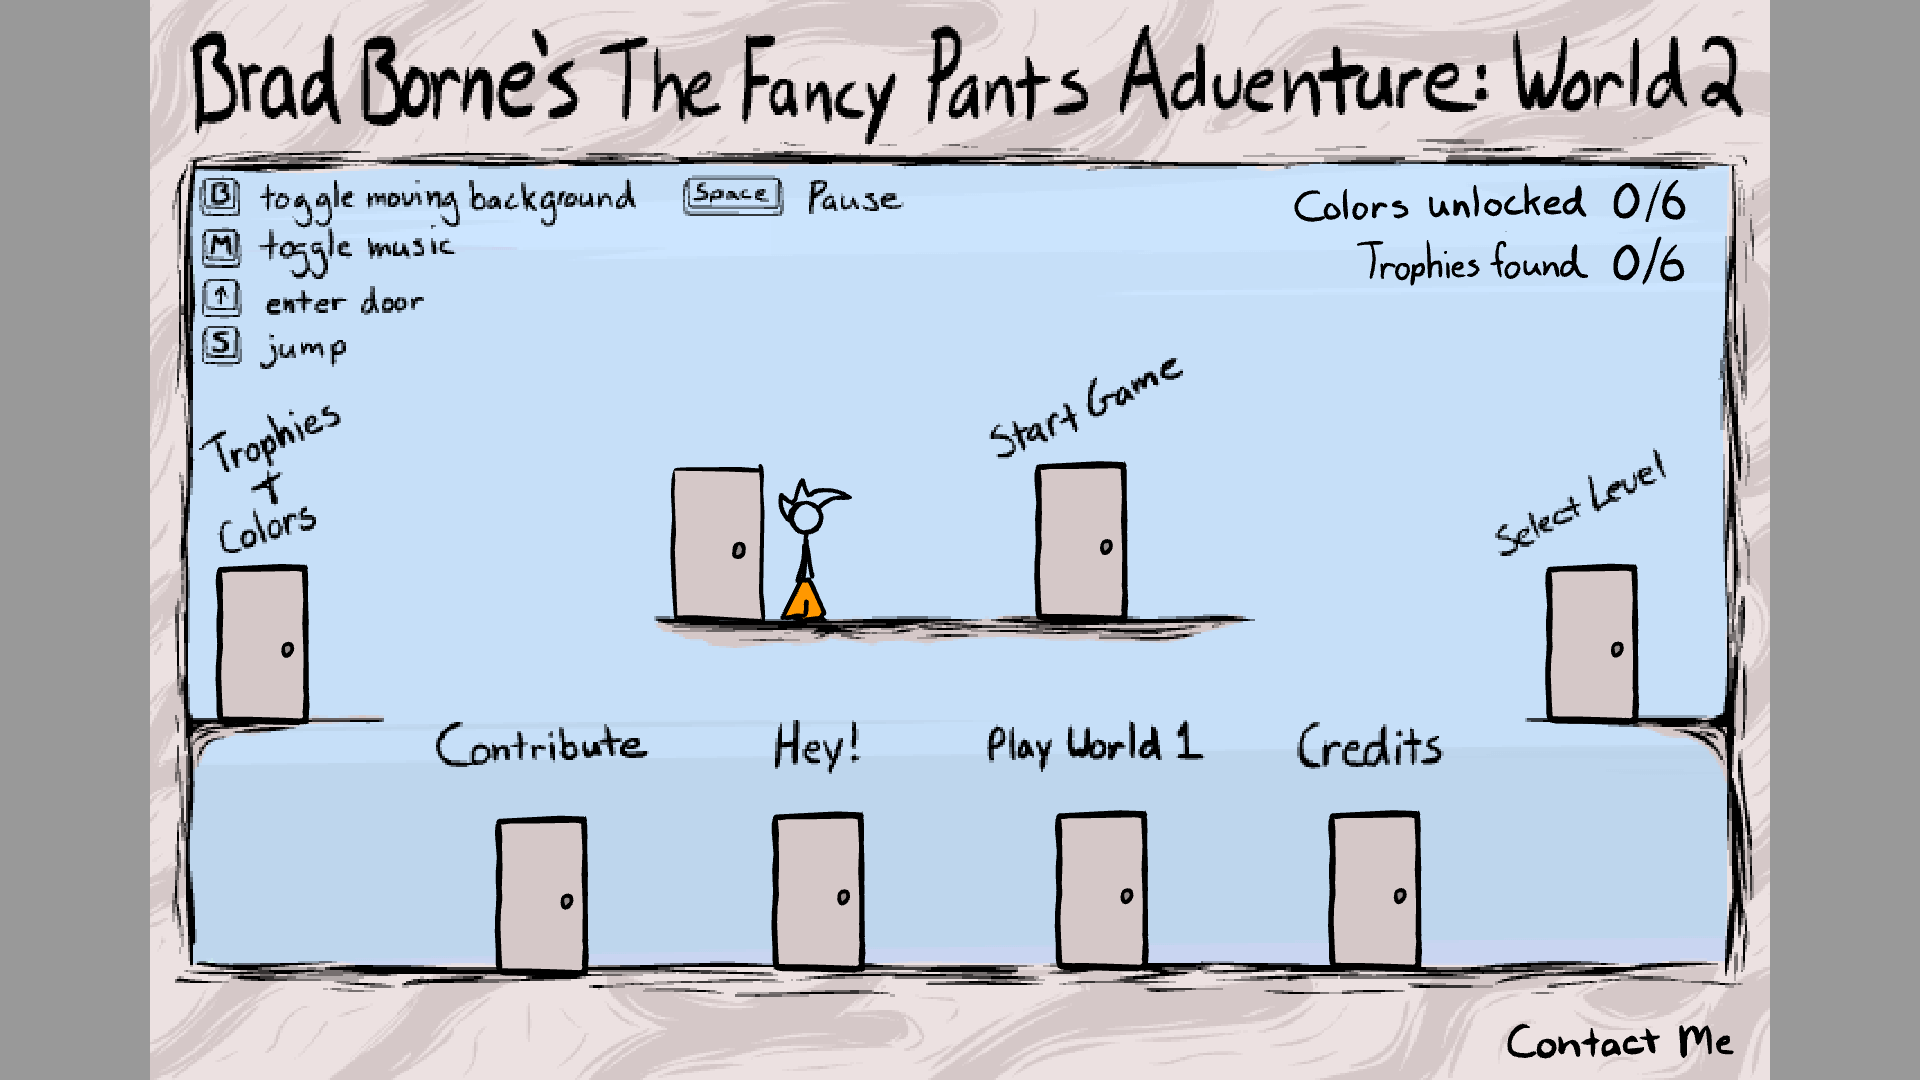 Brad Borne's The Fancy Pants Adventure: World 2
B toggle moving background Space Pause
M toggle music
↑ enter door
S jump
Colors unlocked 0/6
Trophies found 0/6
Trophies
+
Colors
Start Game
Select Level
Contribute
Hey!
Play World 1
Credits
Contact Me